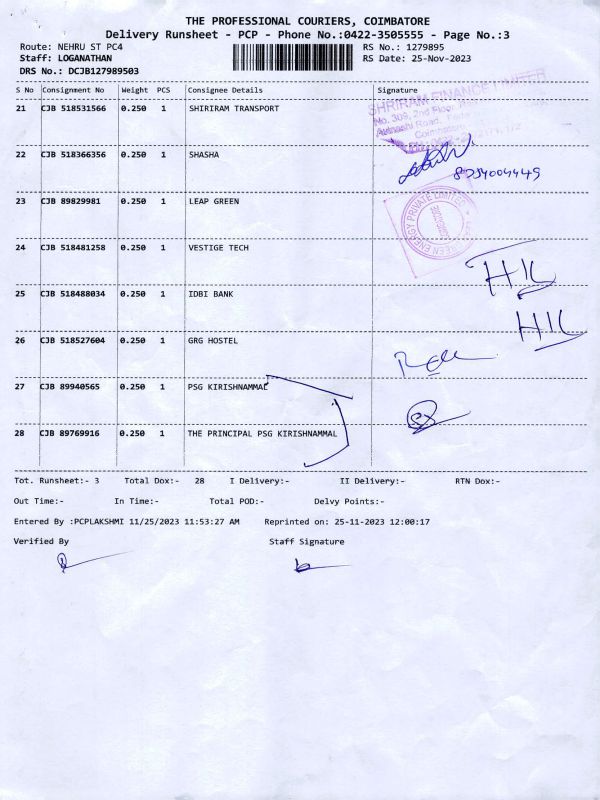 THE PROFESSIONAL COURIERS, COIMBATORE
Delivery Runsheet - PCP - Phone No.:0422-3505555 - Page No.:3
Route: NEHRU ST PC4
RS No.: 1279895
Staff: LOGANATHAN
RS Date: 25-Nov-2023
DRS No.: DCJB127989503
S No Consignment No Weight PCS Consignee Details Signature
21 CJB 518531566 0.250 1 SHRIRAM TRANSPORT
SHRIRAM FINANCE LIMITED
No. 309, 2nd Floor,
Avinashi Road,
22 CJB 518366356 0.250 1 SHASHA
8754004449
23 CJB 89829981 0.250 1 LEAP GREEN
GREEN ENERGY PRIVATE LIMITED
24 CJB 518481258 0.250 1 VESTIGE TECH
25 CJB 518488034 0.250 1 IDBI BANK
26 CJB 518527604 0.250 1 GRG HOSTEL
27 CJB 89940565 0.250 1 PSG KIRISHNAMMAL
28 CJB 89769916 0.250 1 THE PRINCIPAL PSG KIRISHNAMMAL
Tot. Runsheet:- 3 Total Dox:- 28 I Delivery:- II Delivery:- RTN Dox:-
Out Time:- In Time:- Total POD:- Delvy Points:-
Entered By :PCPLAKSHMI 11/25/2023 11:53:27 AM Reprinted on: 25-11-2023 12:00:17
Verified By Staff Signature